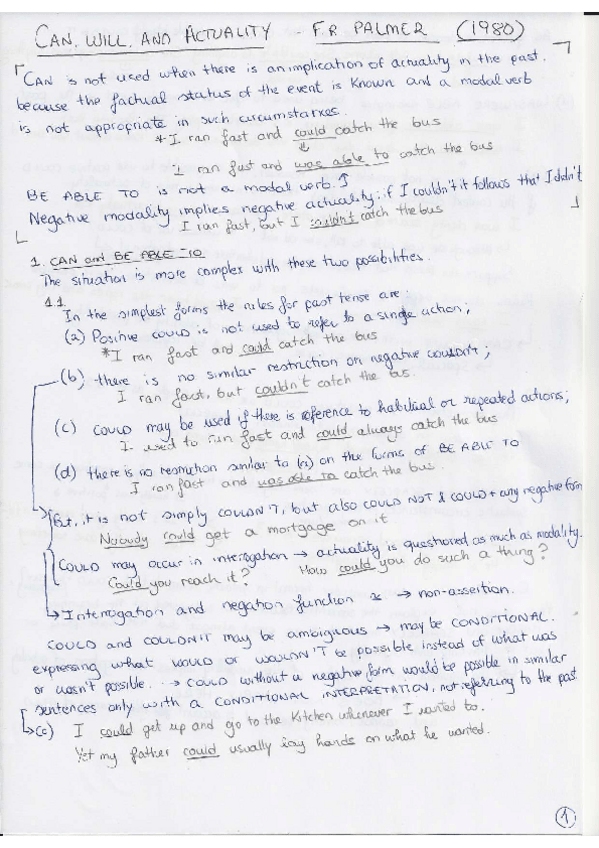 CAN, WILL, AND ACTUALITY - F.R PALMER (1980)
CAN is not used when there is an implication of actuality in the past.
because the factual status of the event is known and a modal verb
is not appropriate in such circumstances.
*I ran fast and could catch the bus
I ran fast and was able to catch the bus
BE ABLE TO is not a modal verb.
Negative modality implies negative actuality: if I couldn't it follows that I didn't
I ran fast, but I couldn't catch the bus
1. CAN and BE ABLE TO
The situation is more complex with these two possibilities.
1.1
In the simplest forms the rules for past tense are:
(a) Positive COULD is not used to refer to a single action;
*I ran fast and could catch the bus
(b) there is no similar restriction on negative COULDN'T;
I ran fast, but couldn't catch the bus.
(c) COULD may be used if there is reference to habitual or repeated actions;
I used to run fast and could always catch the bus
(d) there is no restriction similar to (a) on the forms of BE ABLE TO
I ran fast and was able to catch the bus.
But, it is not simply COULDN'T, but also COULD NOT & COULD + any negative form
Nobody could get a mortgage on it
COULD may occur in interrogation → actuality is questioned as much as modality.
Could you reach it? How could you do such a thing?
→ Interrogation and negation function → non-assertion.
COULD and COULDN'T may be ambiguous → may be CONDITIONAL.
expressing what WOULD or WOULDN'T be possible instead of what was
or wasn't possible. → COULD without a negative form would be possible in similar
sentences only with a CONDITIONAL INTERPRETATION, not referring to the past.
→(c) I could get up and go to the kitchen whenever I wanted to.
Yet my father could usually lay hands on what he wanted.
1